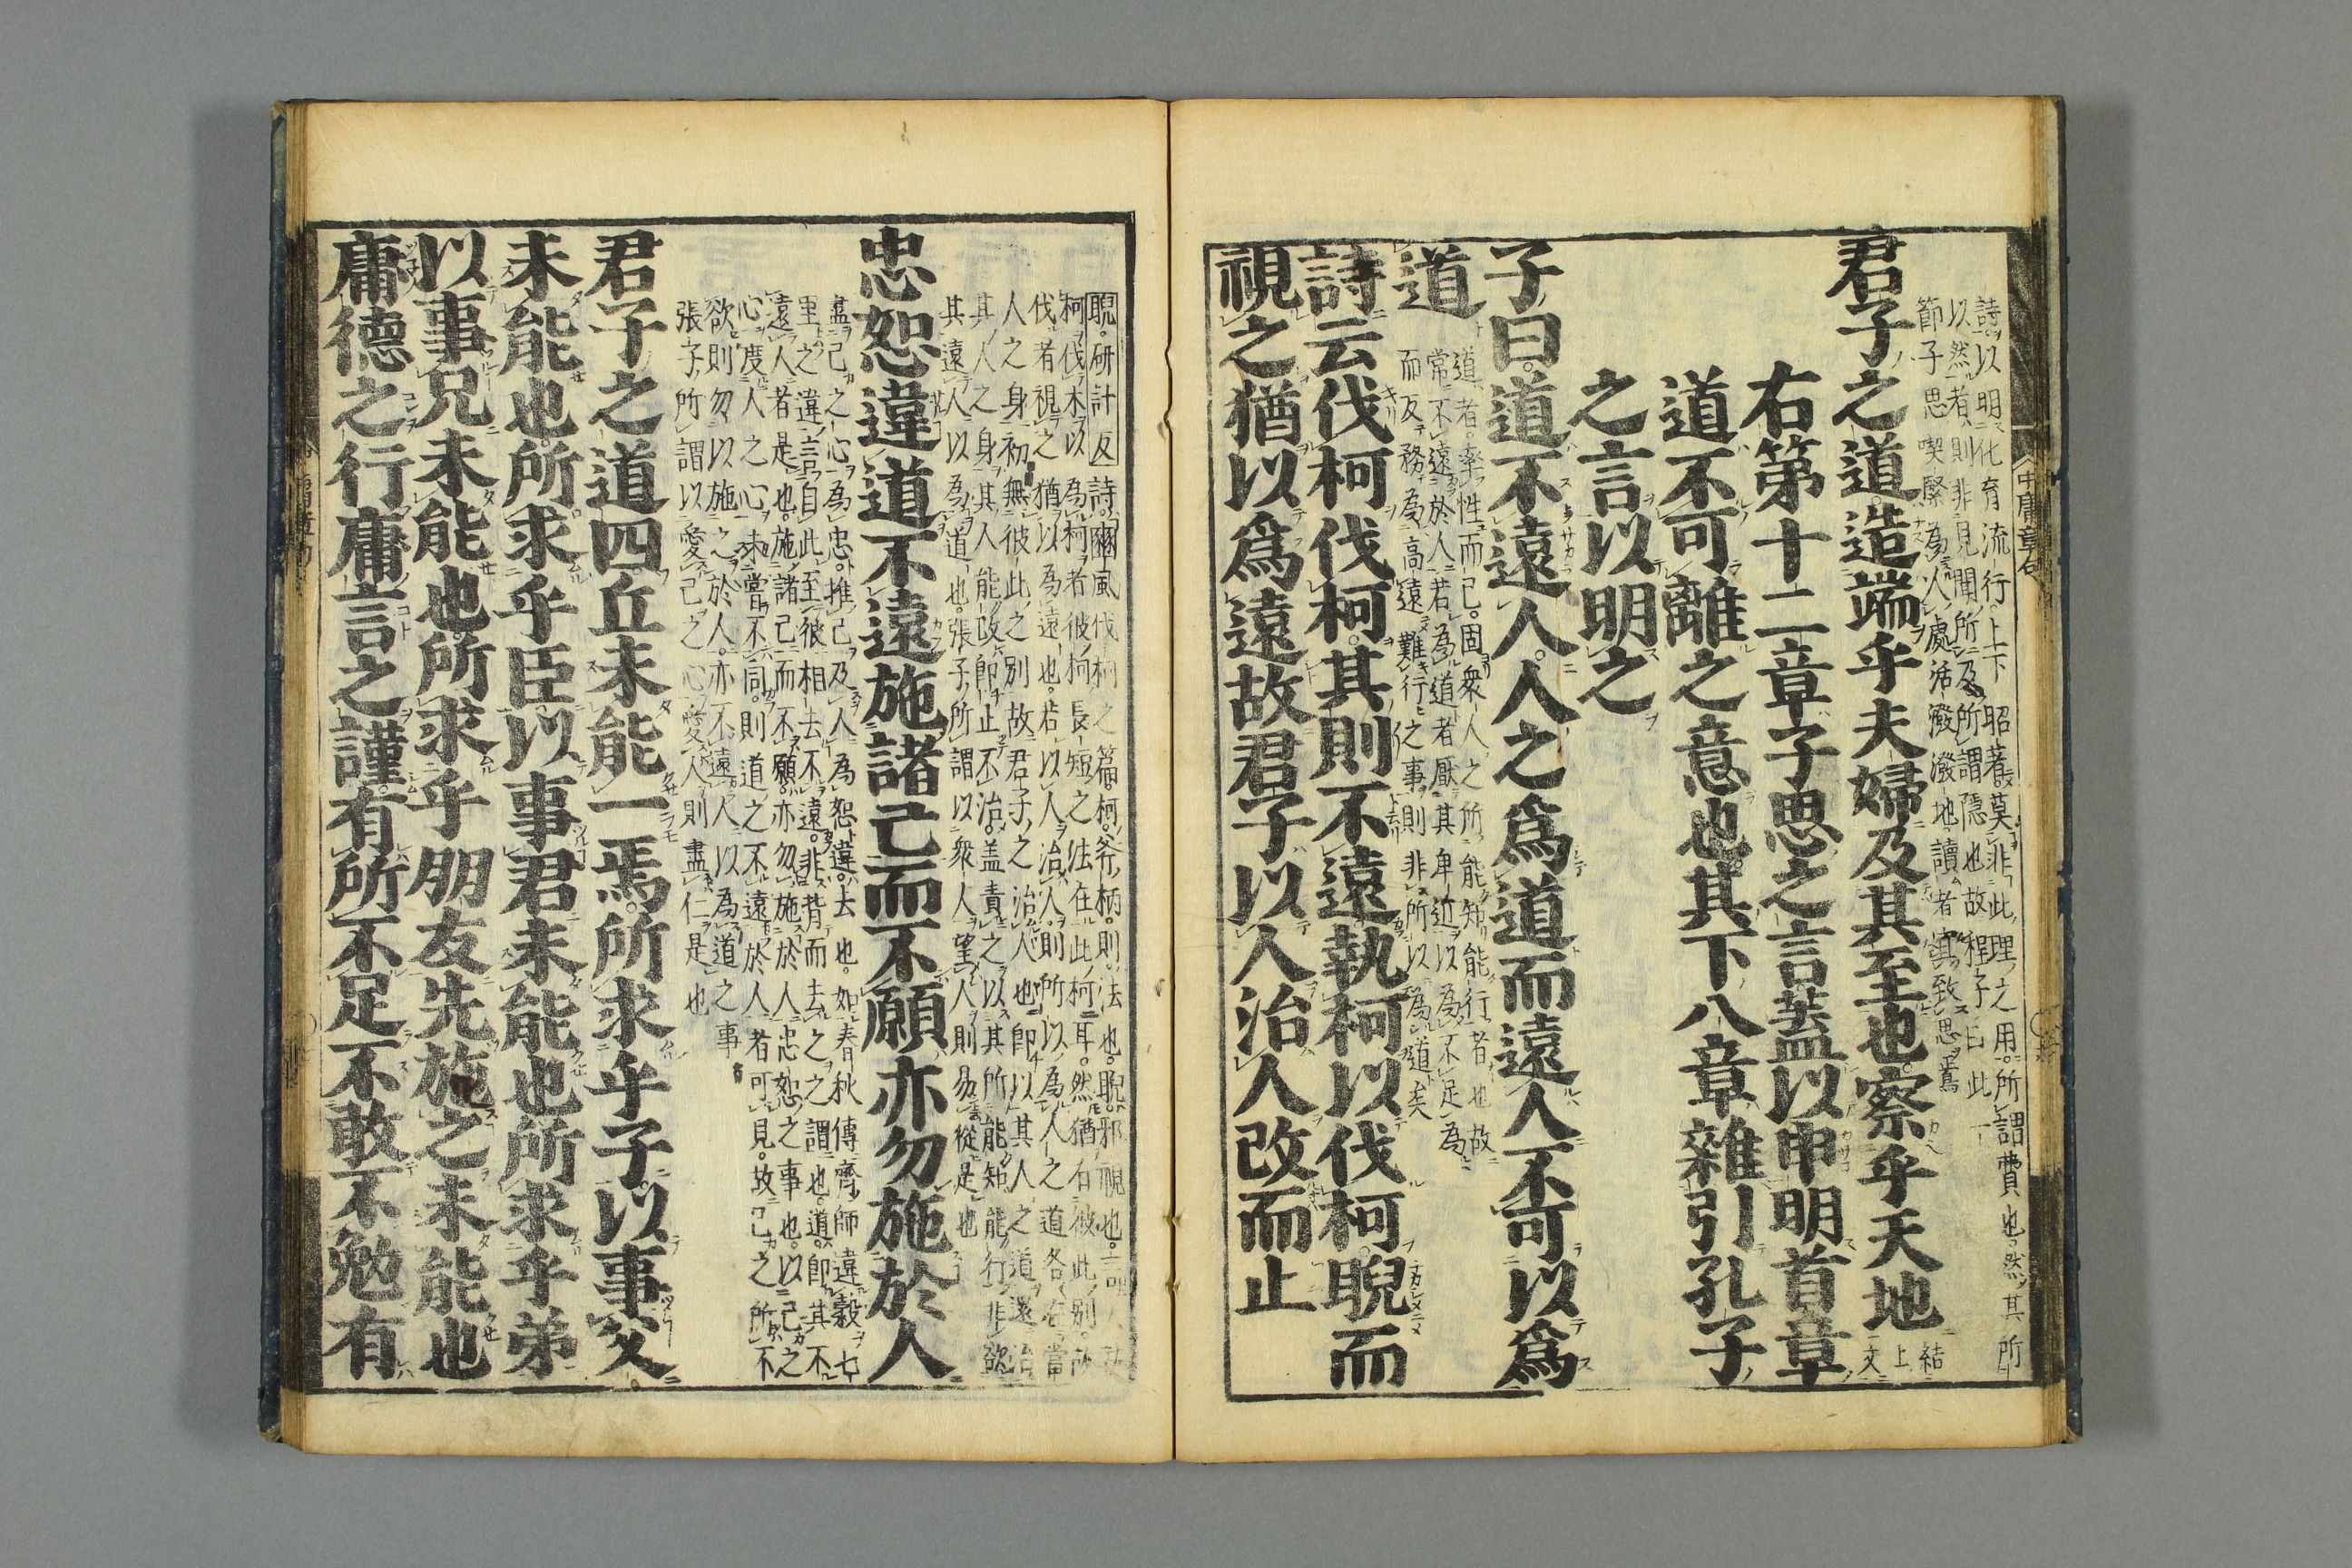 詩以明化育流行上下昭著莫非此理之用所謂費也然其所
以然者則非見聞所及所謂隱也故程子曰此一
節子思喫緊為人處活潑潑地讀者宜致思焉
君子之道造端乎夫婦及其至也察乎天地
結
上
文
右第十二章子思之言蓋以申明首章
道不可離之意也其下八章雜引孔子
之言以明之
子曰道不遠人人之為道而遠人不可以為
道
道者率性而已固眾人之所能知能行者也故
常不遠於人若為道者厭其卑近以為不足為
而反務為高遠難行之事則非所以為道矣
詩云伐柯伐柯其則不遠執柯以伐柯睨而
視之猶以爲遠故君子以人治人改而止
睨研計反 詩豳風伐柯之篇柯斧柄則法也睨邪視也言人執
柯伐木以為柯者彼柯長短之法在此柯耳然猶有彼此之別故
伐者視之猶以為遠也若以人治人則所以為人之道各在當
人之身初無彼此之別故君子之治人也即以其人之道還治
其人之身其人能改即止不治蓋責之以其所能知能行非欲
其遠人以為道也張子所謂以眾人望人則易從是也
忠恕違道不遠施諸己而不願亦勿施於人
盡己之心為忠推己及人為恕違去也如春秋傳齊師違穀七
里之違言自此至彼相去不遠非背而去之之謂也道即其不
遠人者是也施諸己而不願亦勿施於人忠恕之事也以己之
心度人之心未嘗不同則道之不遠於人者可見故己之所不
欲則勿以施之於人亦不遠人以為道之事
張子所謂以愛己之心愛人則盡仁是也
君子之道四丘未能一焉所求乎子以事父
未能也所求乎臣以事君未能也所求乎弟
以事兄未能也所求乎朋友先施之未能也
庸德之行庸言之謹有所不足不敢不勉有
中庸章句